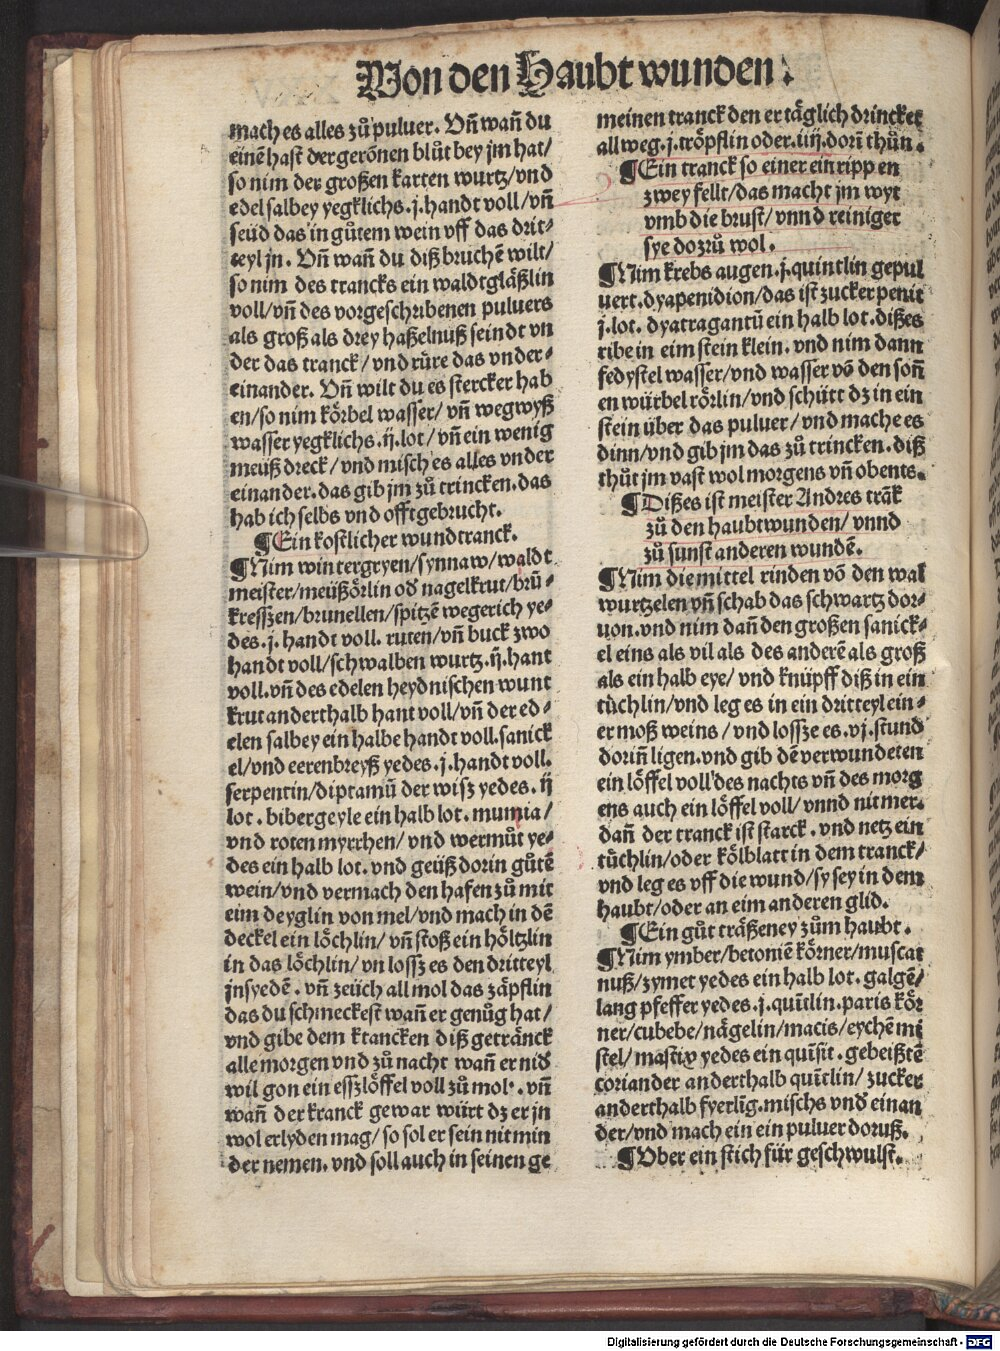 Von den Haubt wunden.
mach es alles zů puluer. Vñ wañ du
einē hast der gerönen blůt bey jm hat/
so nim der großen karten wurtz/vnd
edel salbey yegklichs.j.handt voll/vñ
seüd das in gůtem wein vff das drit⸗
teyl jn. Vñ wañ du diß bruchē wilt/
so nim des trancks ein waldtgläßlin
voll/vñ des vorgeschribenen puluers
als groß als drey haßelnuß seindt vn
der das tranck/vnd rüre das vnder⸗
einander. Vñ wilt du es stercker hab
en/so nim körbel wasser/vñ wegwyß
wasser yegklichs.ij.lot/vñ ein wenig
meüß dreck/vnd misch es alles vnder
einander.das gib jm zů trincken.das
hab ich selbs vnd offt gebrucht.
¶Ein kostlicher wundtranck.
¶Nim wintergryen/synnaw/waldt
meister/meüßörlin od nagelkrut/brū⸗
kresszen/brunellen/spitzē wegerich ye⸗
des.j.handt voll.ruten/vñ buck zwo
handt voll/schwalben wurtz.ij.hant
voll.vñ des edelen heydnischen wunt
krut anderthalb hant voll/vñ der ed⸗
elen salbey ein halbe handt voll.sanick
el/vnd eerenbreyß yedes.j.handt voll.
serpentin/diptamū der wisz yedes.ij
lot.bibergeyle ein halb lot.mumia/
vnd roten myrrhen/vnd wermůt ye⸗
des ein halb lot.vnd geüß dorin gůtē
wein/vnd vermach den hafen zů mit
eim deyglin von mel/vnd mach in dē
deckel ein löchlin/vñ stoß ein höltzlin
in das löchlin/vn lossz es den dritteyl
jnsyedē.vñ zeüch all mol das zäpflin
das du schmeckest wañ er genůg hat/
vnd gibe dem ktancken diß getränck
alle morgen vnd zů nacht wañ er nid
wil gon ein esszlöffel voll zů mol.vñ
wañ der kranck gewar würt dz er jn
wol erlyden mag/so sol er sein nit min
der nemen.vnd soll auch in seinen ge
meinen tranck den er täglich drincket
all weg.j.tröpflin oder.iiij.dorin thůn.
¶Ein tranck so einer ein ripp en
zwey fellt/das macht jm wyt
vmb die brust/vnnd reiniget
sye dozzů wol.
¶Nim krebs augen.j.quintlin gepul
uert.dyapenidion/das ist zucker penit
j.lot.dyatragantū ein halb lot.dißes
ribe in eim stein klein.vnd nim dann
fedystel wasser/vnd wasser vō den soñ
en würbel rörlin/vnd schütt dz in ein
stein über das puluer/vnd mache es
dinn/vnd gib jm das zů trincken.diß
thůt jm vast wol morgens vñ obents.
¶Dißes ist meister Andres trāk
zů den haubtwunden/vnnd
zů sunst anderen wundē.
¶Nim die mittel rinden vō den wal
wurtzelen vñ schab das schwartz dor⸗
uon.vnd nim dañ den großen sanick⸗
el eins als vil als des anderē als groß
als ein halb eye/vnd knüpff diß in ein
tůchlin/vnd leg es in ein dritteyl ein⸗
er moß weins/vnd lossze es.vj.stund
doriñ ligen.vnd gib dē verwundeten
ein löffel voll des nachts vñ des morg
ens auch ein löffel voll/vnnd nit mer.
dañ der tranck ist starck.vnd netz ein
tůchlin/oder kölblatt in dem tranck/
vnd leg es vff die wund/sy sey in dem
haubt/oder an eim anderen glid.
¶Ein gůt träßeney zům haubt.
¶Nim ymber/betoniē körner/muscat
nuß/zymet yedes ein halb lot.galgē/
lang pfeffer yedes.j.quītlin.paris kör
ner/cubebe/nägelin/macis/eychē mi
stel/mastix yedes ein quīsit.gebeißtē
coriander anderthalb quītlin/zucker
anderthalb fyerlīg.mischs vnd einan
der/vnd mach ein ein puluer doruß.
¶Vber ein stich für geschwulst.
Digitalisierung gefördert durch die Deutsche Forschungsgemeinschaft - DFG